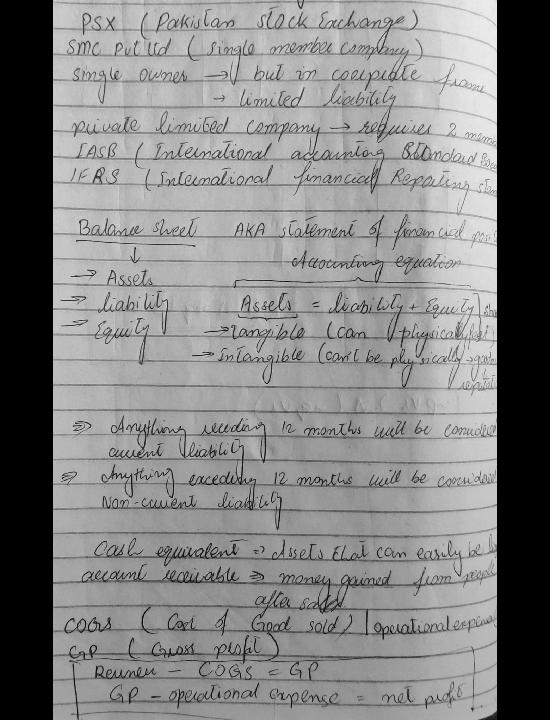 PSX (Pakistan stock Exchange)
SMC Pvt Ltd (single member company)
single owner → but in coorpurate frame
→ limited liability
private limited company → requires 2 mem
IASB (International accounting Standard
IFRS (International financial Reporting stan
Balance sheet AKA statement of financial posi
Accounting equation
→ Assets
→ liability Assets = liability + Equity
→ Equity → Tangible (can physically
→ Intangible (can't be physically → good
reputat
⇒ Anything receding 12 months will be conside
current liability
⇒ Anything exceeding 12 months will be considered
Non-current liability
Cash equivalent => Assets that can easily be
account receivable ⇒ money gained from people
after sales
COGS (Cost of Good sold) | operational expense
GP (Gross profit)
Reuneu - COGS = GP
GP - operational expense = net profit